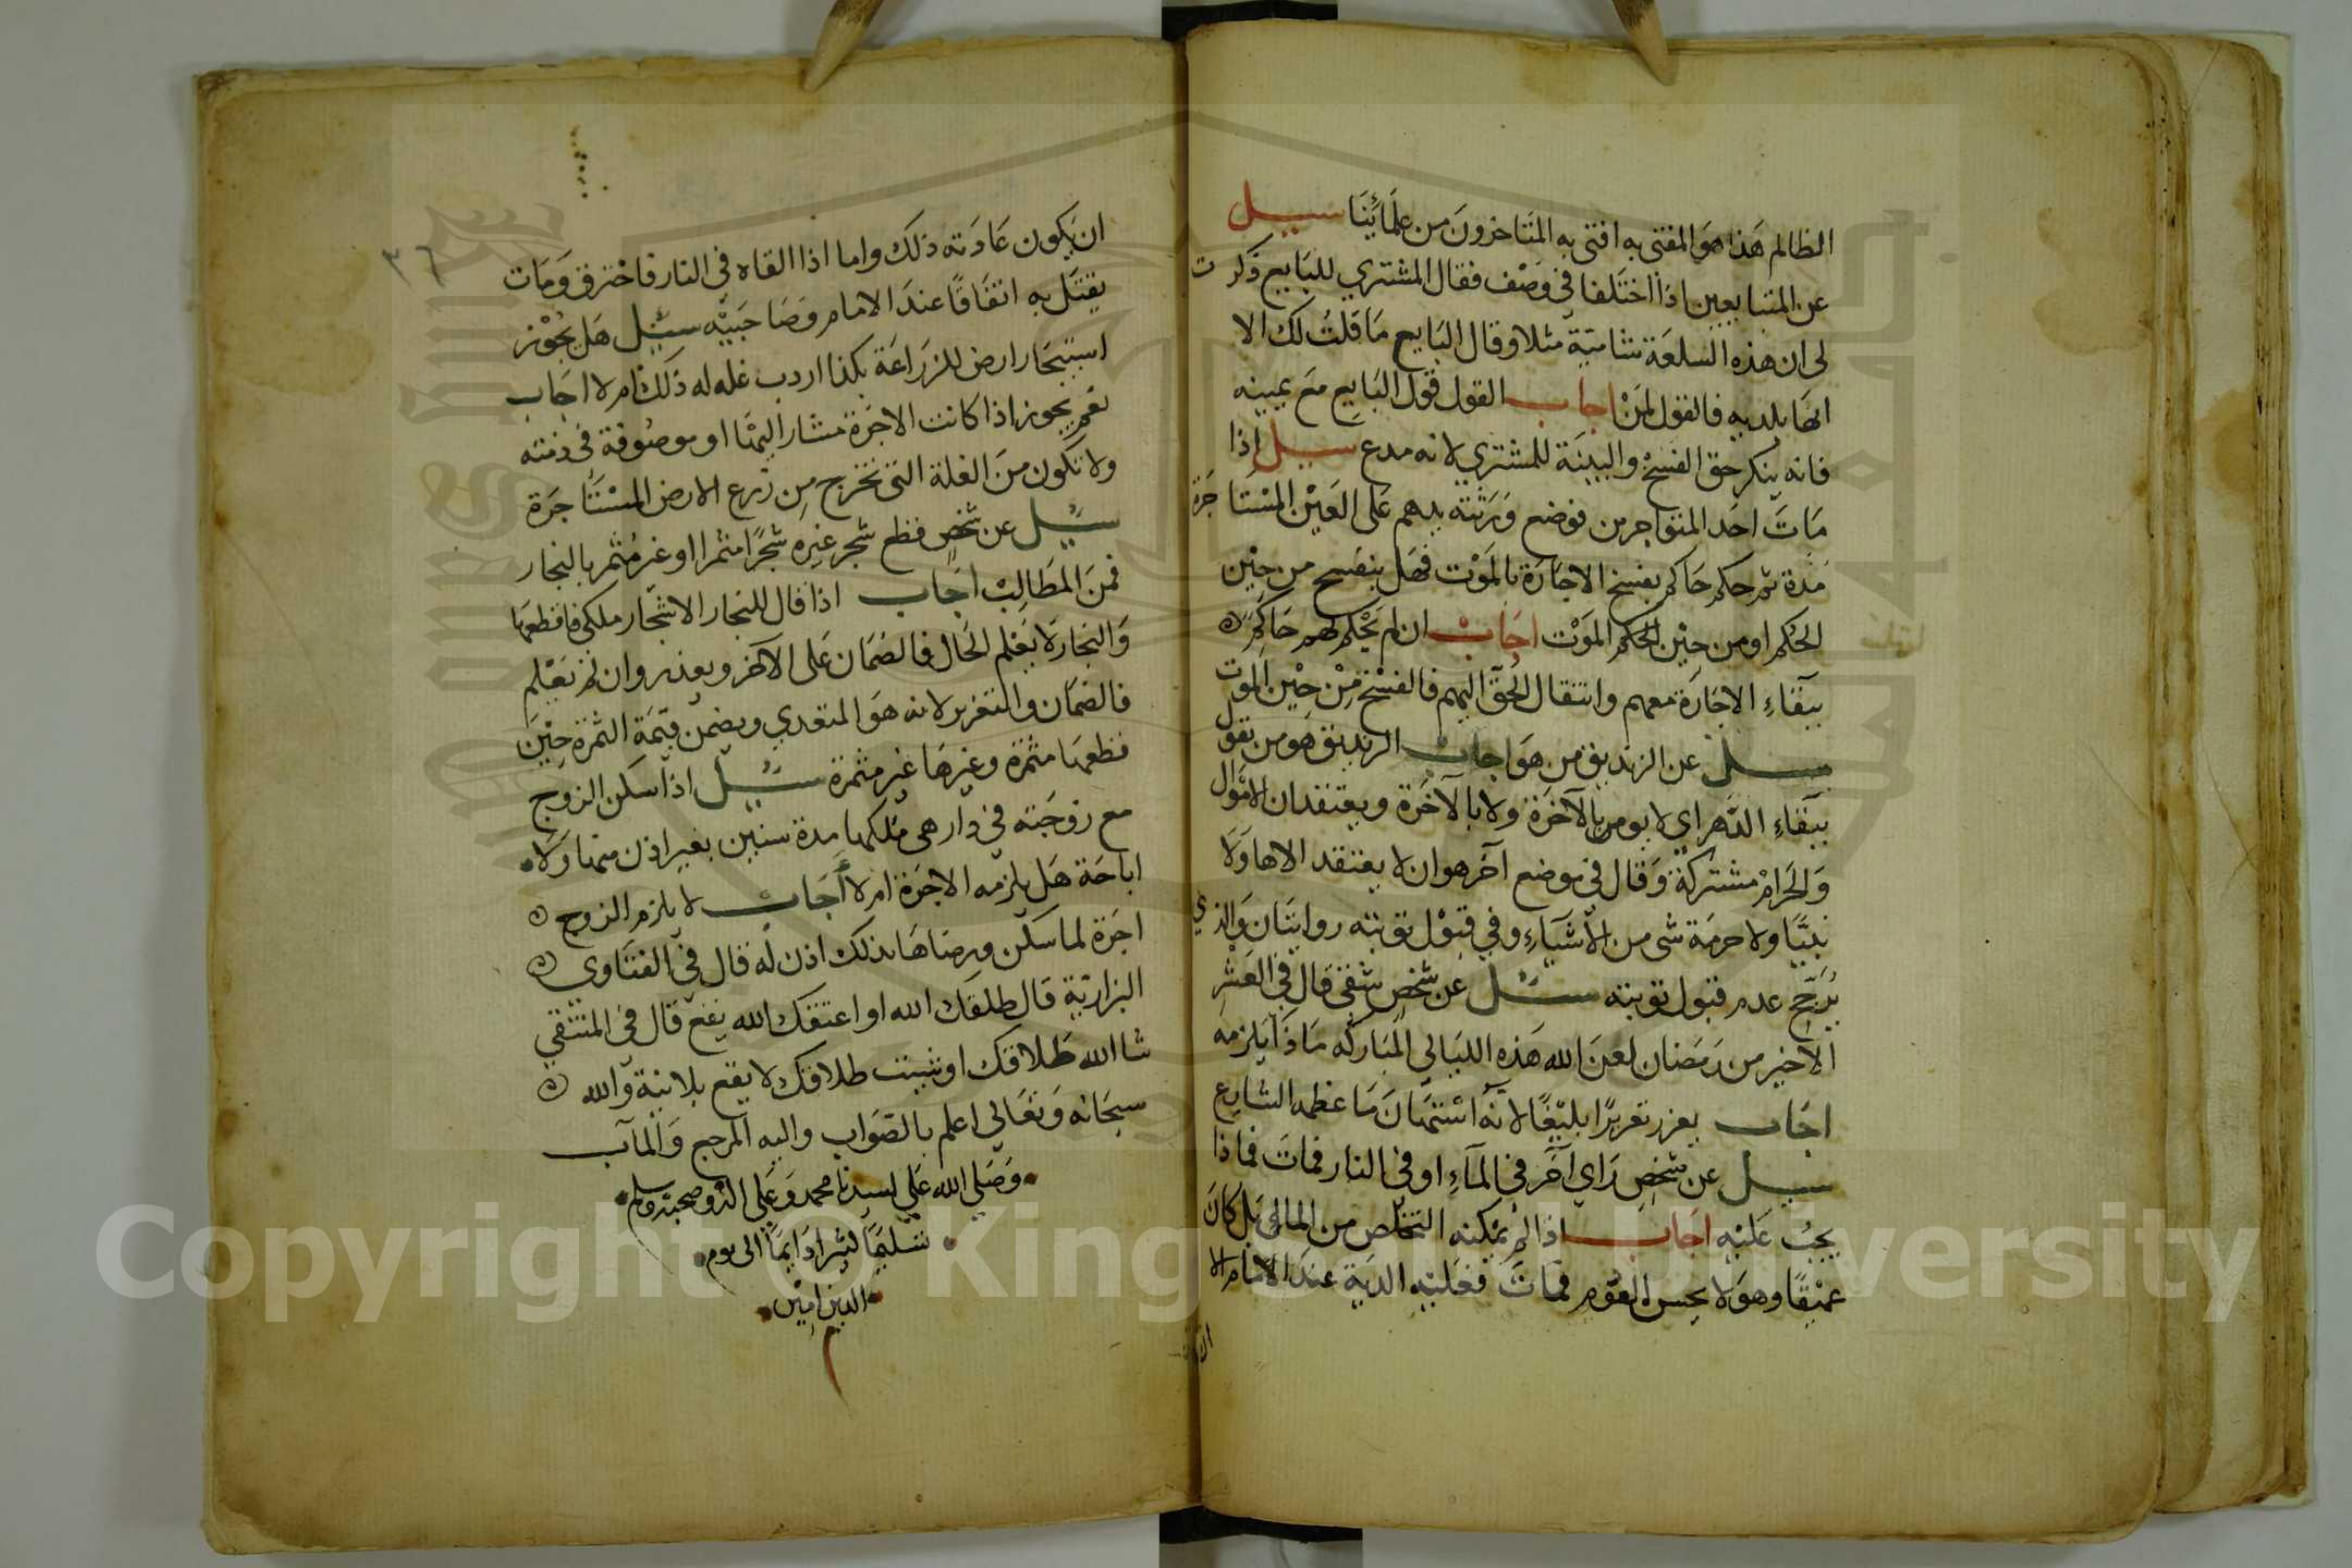 الظالم هَذا هوَ المفتى به افتى به المتَاخرونَ من علمَائنَا سيل
عن المتبايعين اذا اختَلفا في وَصْف فقال المشتري للبَايع ذكرت
لى ان هذه السلعَة شاميَة مثلا وقال البَايع مَا قلتُ لك الا
انهَا بلديه فالقول لمَنْ اجاب القول قول البَايع مَع يمينه
فانه ينكر حق الفسخ والبينَة للمشتري لانه مدع سيل اذا
مَاتَ احَد المتواجرين فوضع وَرَثته يدهم عَلى العَيْن المسْتَاجَرة
مَدة ثم حكم حَاكم بفسخ الاجَارَة بالمَوْت فهَل ينفسح من حيْن
الحكم او من حيْن الحكم الموَتْ اجَابْ ان لم يَحْكم لهم حَاكمٌ
ببقَاءِ الاجَارَة معهم وانتقال الحق اليهم فالفسْخ مِنْ حيْن الموت
سيل عن الزنديق من هوَ اجاب الزنديق هو من يقول
ببقَاءِ الدَّهر اي لا يومن بالآخرَة ولا بالآخَرة ويعتقد ان الاموَال
وَالحَرامْ مشتركة وَقال في موضع آخر هو ان لا يعتقد الاها وَلَا
نبيًّا ولا حرمَة شى من الأشيَاءِ وفي قبوْل توبته روايتَان وَالذي
يُرَجّح عدم قبول توبته سئل عن شخص شقي قال في العَشرِ
الاخير من رَمَضان لعنَ الله هَذه الليَالي المبَاركَه مَاذَا يَلزمه
اجَاب يعزر تعزيرًا بليْغًا لانّهُ اسْتهَانَ مَا عظمه الشارِع
سيل عن شخص رَاي آخَر في المآءِ او في النار فمَاتَ فماذا
يجبُ عَليْه اجَاب اذا لمْ يمْكنه التخلّص من الما لى بَل كانَ
عميْقًا وهوَ لا يحسن العَوْم فمَاتَ فعَليْه الديَة عندَ الامَام الا
ان
٣٦
ان يكون عَادَته ذلك واما اذا القاه فى النار فاحْترق وَمَات
يقتَل به اتفاقًا عندَ الامام وَصَاحبَيْه سئيل هَل يجُوْز
استيجَار ارض للزرَاعَة بكذا اردب غله له ذَلك ام لا اجَاب
نعم يجوز اذا كانت الاجَرة مشار اليهَا او موصُوفة فى ذمته
ولا تكون منَ الغلة التى تخرج مِن زرع الارض المسْتَأجَرة
سئل عن شخصٍ قطع شجر غيره شجرًا مثمرا او غير مُثمر بالنجار
فمنَ المطَالِبْ اجَاب اذا قال للنجار الاشجار ملكى فاقطعهَا
وَالنجار لَا يَعْلم الحَال فالضمَان عَلى الآمر ويعذر وان لم يَعْلم
فالضمَان والتعزير لانه هَوَ المتعدي ويضمن قيمَة الثمرَة حيْنَ
قطعهَا مثمرَة وغيرهَا غير مثمرة سئيل اذا سكن الزوج
مع زوجَته في دار هى ملكهَا مدة سنين بغير اذن منهَا وَلَا
اباحَة هَل يلزمه الاجرَة ام لا اجَاب لا يلزم الزوج
اجرَة لما سكن ورضاهَا بذلك اذن له قال في الفتَاوى
البزازيّة قال طلقك الله او اعتقك الله يقع قال في المنتقي
شا الله طَلاقك او شيت طلاقك لا يقع بلا نية وَالله
سبحَانه وَتعَالي اعلم بالصوَاب واليه المرجع وَالمآب
وَصَلى الله عَلي سيدنا محمد وَعَلى اله وصحبه وسلم
تسْليمًا كثيرا دَايمًا الى يوم
الدين امِيْن